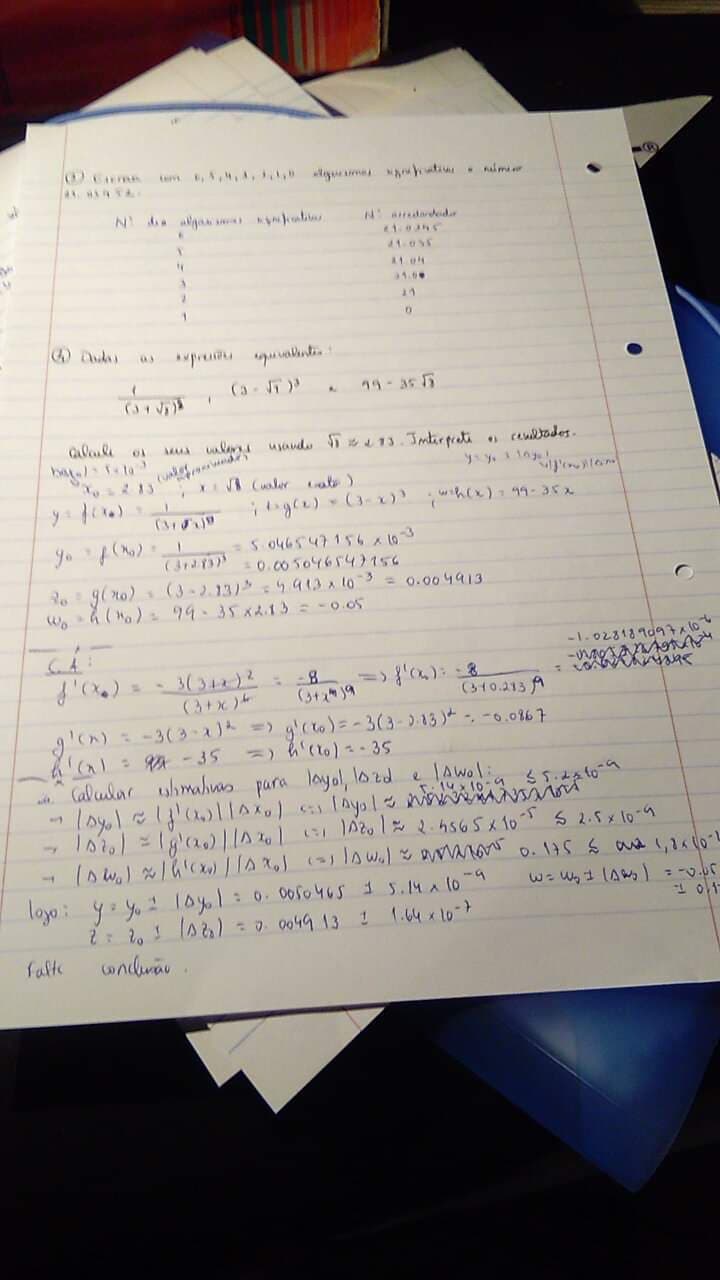 ③ Escreva com 6, 5, 4, 3, 2, 1, 0 algarismos significativos o número
21.03452.
Nº dos algarismos significativos Nº arredondado
6 21.0345
5 21.035
4 21.04
3 21.0
2 21
1 0
④ Dadas as expresões equivalentes:
1/(3+√8)³ , (3-√8)³ e 99-35√8
Calcule os seus valores usando √8 ≈ 2.83. Interprete os resultados.
x₀ = 2.83 (valor aproximado) ; x = √8 (valor exato)
y = f(x) = 1/(3+x)³ ; z = g(x) = (3-x)³ ; w = h(x) = 99-35x
y₀ = f(x₀) = 1/(3+2.83)³ = 5.046547156 × 10⁻³
= 0.005046547156
z₀ = g(x₀) = (3-2.83)³ = 4.913 × 10⁻³ = 0.004913
w₀ = h(x₀) = 99 - 35×2.83 = -0.05
C.A:
-1.028189097 × 10⁻⁶
f'(x) = -3(3+x)²/(3+x)⁶ = -8/(3+x)⁹ => f'(x₀) = -8/(3+0.283)⁹ =
g'(x) = -3(3-x)² => g'(x₀) = -3(3-2.83)² = -0.0867
h'(x) = -35 => h'(x₀) = -35
Calcular estimativas para |Δy₀|, |Δz₀| e |Δw₀|:
→ |Δy₀| ≈ |f'(x₀)||Δx₀| <=> |Δy₀| ≈ 5.14 × 10⁻⁹ ≤ 5.2 × 10⁻⁹
→ |Δz₀| ≈ |g'(x₀)||Δx₀| <=> |Δz₀| ≈ 2.4565 × 10⁻⁵ ≤ 2.5 × 10⁻⁹
→ |Δw₀| ≈ |h'(x₀)||Δx₀| <=> |Δw₀| ≈ 0.175 ≤
logo: y = y₀ ± |Δy₀| = 0.0050465 ± 5.14 × 10⁻⁹ w = w₀ ± |Δw₀| = -0.05
z = z₀ ± |Δz₀| = 0.004913 ± 1.64 × 10⁻⁷
Falte conclusão.